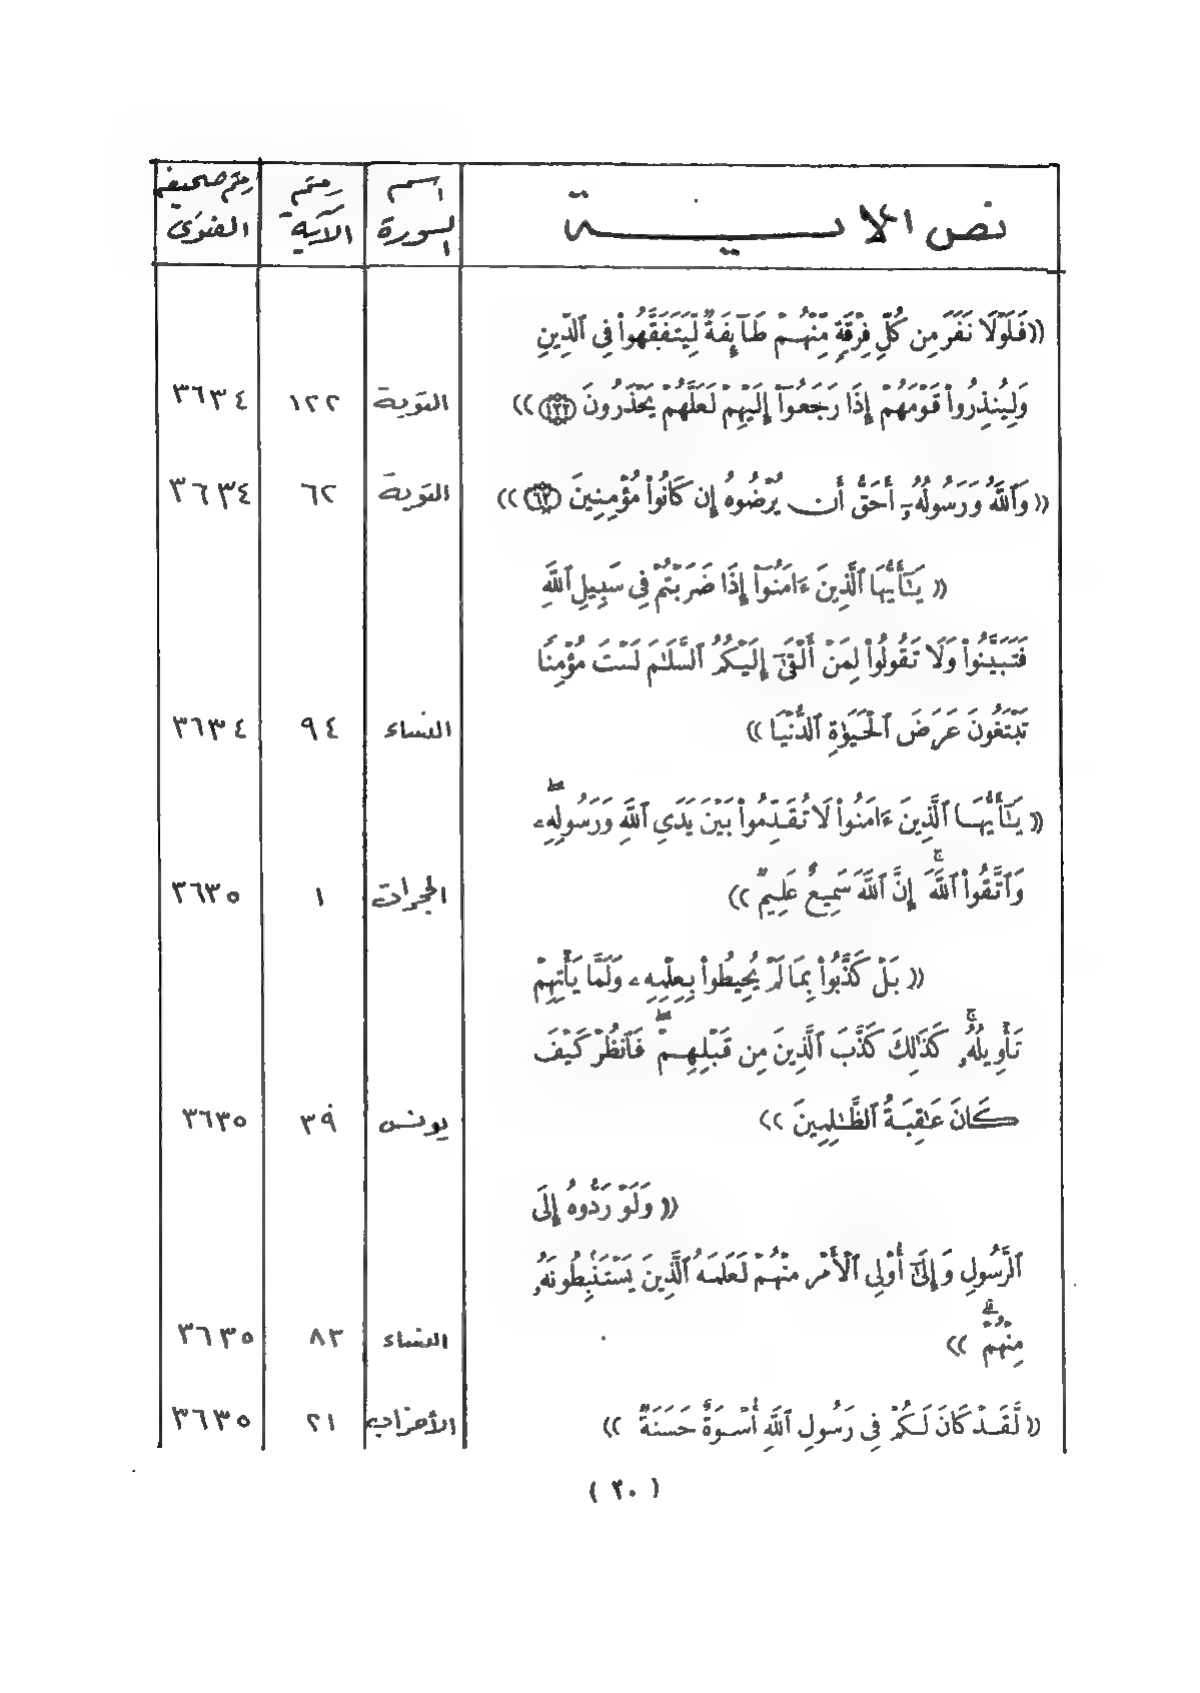 نص الآيـــــة اسم السورة رقم الآية رقم صحيفة الفتوى
«فَلَوْلَا نَفَرَ مِن كُلِّ فِرْقَةٍ مِّنْهُمْ طَآئِفَةٌ لِّيَتَفَقَّهُوا۟ فِى ٱلدِّينِ
وَلِيُنذِرُوا۟ قَوْمَهُمْ إِذَا رَجَعُوٓا۟ إِلَيْهِمْ لَعَلَّهُمْ يَحْذَرُونَ ﴿١٢٢﴾» التوبة ١٢٢ ٣٦٣٤
«وَٱللَّهُ وَرَسُولُهُۥٓ أَحَقُّ أَن يُرْضُوهُ إِن كَانُوا۟ مُؤْمِنِينَ ﴿٦٢﴾» التوبة ٦٢ ٣٦٣٤
«يَـٰٓأَيُّهَا ٱلَّذِينَ ءَامَنُوٓا۟ إِذَا ضَرَبْتُمْ فِى سَبِيلِ ٱللَّهِ
فَتَبَيَّنُوا۟ وَلَا تَقُولُوا۟ لِمَنْ أَلْقَىٰٓ إِلَيْكُمُ ٱلسَّلَـٰمَ لَسْتَ مُؤْمِنًا
تَبْتَغُونَ عَرَضَ ٱلْحَيَوٰةِ ٱلدُّنْيَا» النساء ٩٤ ٣٦٣٤
«يَـٰٓأَيُّهَا ٱلَّذِينَ ءَامَنُوا۟ لَا تُقَدِّمُوا۟ بَيْنَ يَدَىِ ٱللَّهِ وَرَسُولِهِۦۖ
وَٱتَّقُوا۟ ٱللَّهَۚ إِنَّ ٱللَّهَ سَمِيعٌ عَلِيمٌ» الحجرات ١ ٣٦٣٥
«بَلْ كَذَّبُوا۟ بِمَا لَمْ يُحِيطُوا۟ بِعِلْمِهِۦ وَلَمَّا يَأْتِهِمْ
تَأْوِيلُهُۥۚ كَذَٰلِكَ كَذَّبَ ٱلَّذِينَ مِن قَبْلِهِمْۖ فَٱنظُرْ كَيْفَ
كَانَ عَـٰقِبَةُ ٱلظَّـٰلِمِينَ» يونس ٣٩ ٣٦٣٥
«وَلَوْ رَدُّوهُ إِلَى
ٱلرَّسُولِ وَإِلَىٰٓ أُو۟لِى ٱلْأَمْرِ مِنْهُمْ لَعَلِمَهُ ٱلَّذِينَ يَسْتَنۢبِطُونَهُۥ
مِنْهُمْۗ» النساء ٨٣ ٣٦٣٥
«لَّقَدْ كَانَ لَكُمْ فِى رَسُولِ ٱللَّهِ أُسْوَةٌ حَسَنَةٌ» الأحزاب ٢١ ٣٦٣٥
( ٢٠ )